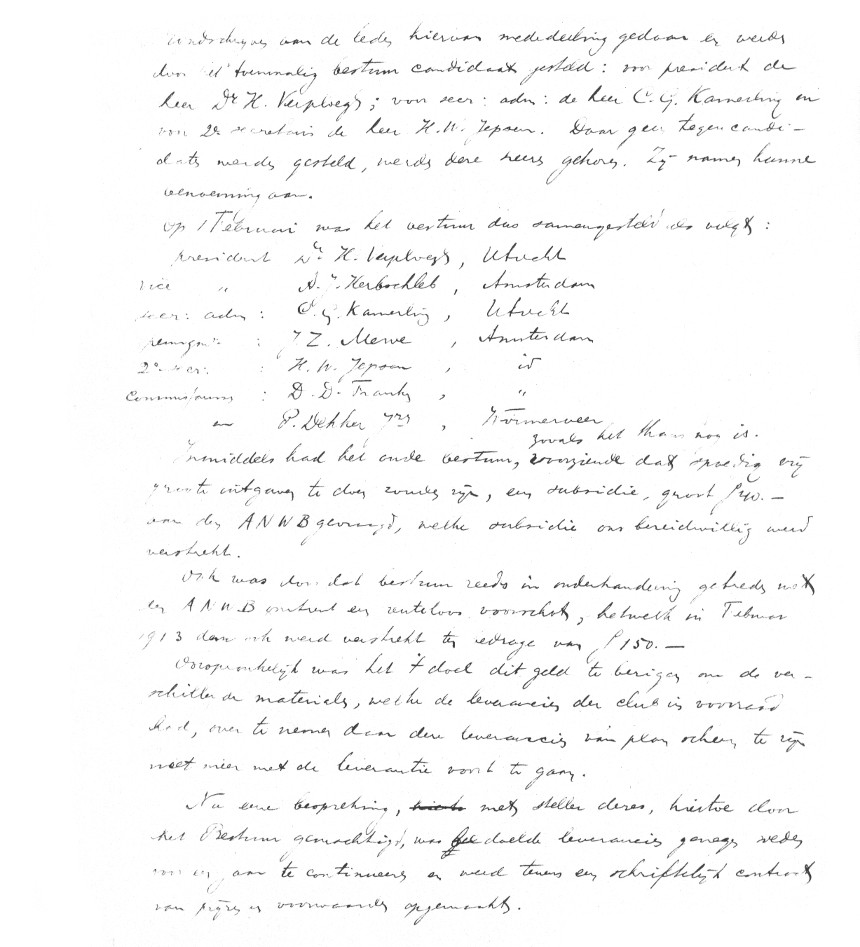 aan de leden hiervan mededeeling gedaan en werden
door het toenmalig bestuur candidaat gesteld: voor president de
heer Dr H. Verploegh; voor secr: adm: de heer C. G. Kamerling en
voor 2e secretaris de heer H. W. Jepsen. Daar geen tegencandi-
daten werden gesteld, werden deze heeren gekozen. Zij namen hunne
benoeming aan.
Op 1 Februari was het bestuur dus samengesteld als volgt:
president Dr H. Verploegh, Utrecht
vice " A. J. Herbschleb, Amsterdam
secr: adm: C. G. Kamerling, Utrecht
penningm: : J Z. , Amsterdam
2e secr: : H. W. Jepsen, id
Commissaris : D. D. Franken, "
en P. Dekker Jrz, Wormerveer
zooals het thans nog is.
Inmiddels had het oude bestuur, voorziende dat spoedig vrij
groote uitgaven te doen zouden zijn, een subsidie, groot
aan den ANWB gevraagd, welke subsidie ons bereidwillig werd
verstrekt.
Ook was door dat bestuur reeds in onderhandeling getreden met
den ANWB omtrent een renteloos voorschot, hetwelk in Februari
1913 dan ook werd verstrekt ten bedrage van f 150.—
Oorspronkelijk was het doel dit geld te bezigen om de ver-
schillende materialen, welke de leverancier der club in voorraad
had, over te nemen daar deze leverancier van plan scheen te zijn
niet meer met de leverantie voort te gaan.
Na eene bespreking, met steller dezes, hiertoe door
het Bestuur gemachtigd, was bedoelde leverancier genegen weder
voor een jaar te continueeren en werd tevens een schriftelijk contract
van prijzen en voorwaarden opgemaakt.